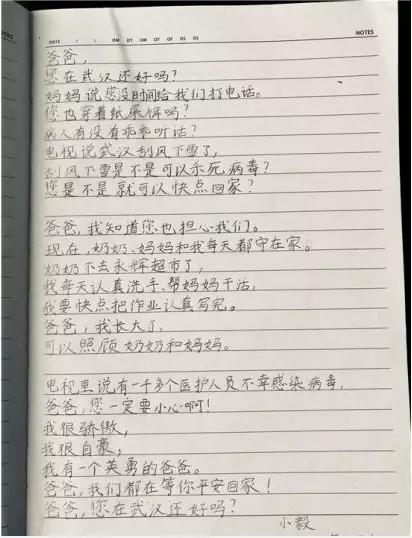 DATE / / OM OT OW OT OF OS OS NOTES
爸爸,
您在武汉还好吗?
妈妈说您没时间给我们打电话。
您也穿着纸尿裤吗?
病人有没有乖乖听话?
电视说武汉刮风下雪了,
刮风下雪是不是可以杀死病毒?
您是不是就可以快点回家?
爸爸,我知道您也担心我们。
现在,奶奶、妈妈和我每天都守在家。
奶奶不去永辉超市了,
我每天认真洗手、帮妈妈干活,
我要快点把作业认真写完。
爸爸,我长大了,
可以照顾奶奶和妈妈。
电视里说有一千多个医护人员不幸感染病毒,
爸爸,您一定要小心啊!
我很骄傲,
我很自豪,
我有一个英勇的爸爸。
爸爸,我们都在等你平安回家!
爸爸,您在武汉还好吗?
小毅